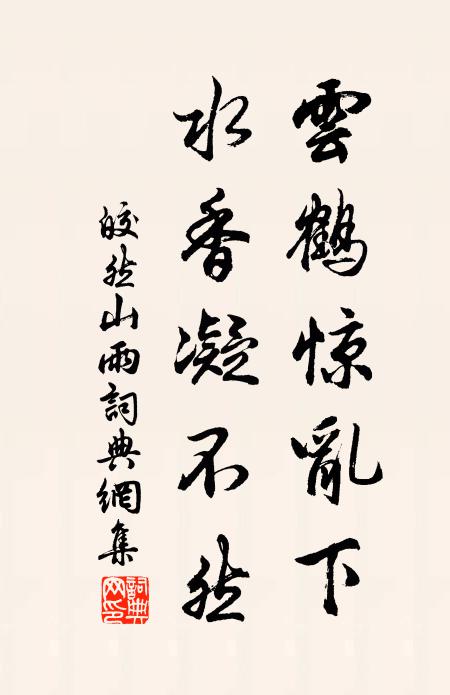 雲鶴惊亂下
水香凝不然
皎然山雨詞典網集
詞典网印